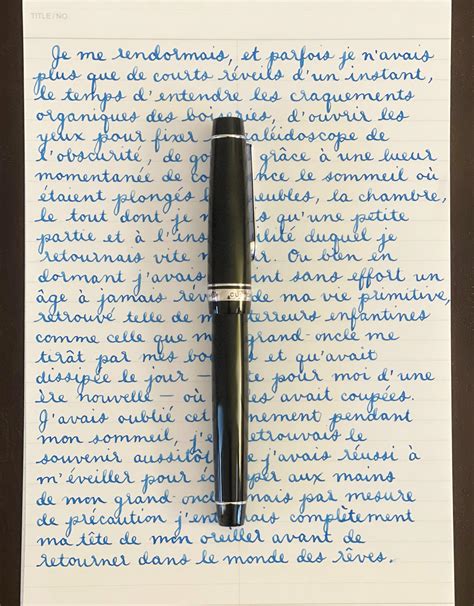 TITLE/NO.
Je me rendormais, et parfois je n'avais
plus que de courts réveils d'un instant,
le temps d'entendre les craquements
organiques des boiseries, d'ouvrir les
yeux pour fixer de
l'obscurité, de grâce à une lueur
momentanée de le sommeil où
étaient plongés la chambre,
le tout dont je qu'une petite
partie et à duquel je
retournais vite Ou bien en
dormant j'avais sans effort un
âge à jamais de ma vie primitive,
retrouvé telle de terreurs enfantines
comme celle que grand-oncle me
tirât par mes et qu'avait
dissipée le jour — pour moi d'une
ère nouvelle — où avait coupées.
J'avais oublié cet pendant
mon sommeil, le
souvenir aussitôt j'avais réussi à
m'éveiller pour aux mains
de mon mais par mesure
de précaution complètement
ma tête de mon oreiller avant de
retourner dans le monde des rêves.